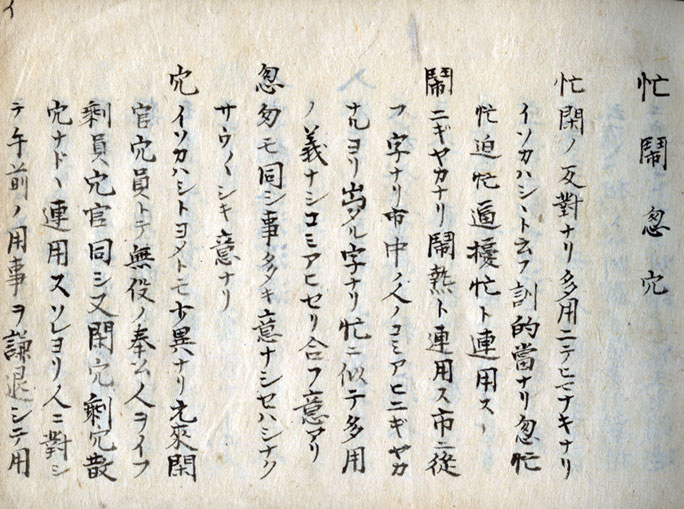 忙 鬧 忽 冗
忙 閑ノ反對ナリ多用ニテヒマナキナリ
イソカハシヽト云フ訓的當ナリ忽忙
忙迫忙遁擾忙ト連用スヽ
鬧 ニギヤカナリ鬧熱ト連用ス市ニ從
フ字ナリ市中ノ人ノコミアヒニギヤカ
ナルヨリ出タル字ナリ忙ニ似テ多用
ノ義ナシコミアヒセリ合フ意アリ
忽 匆モ同シ事タクキ意ナシセハシナク
サウ〳〵シキ意ナリ
冗 イソカハシトヨメトモ少異ナリ元來閑
官冗員トテ無役ノ奉公人ヲイフ
剩員冗官同シ又閑冗剩冗散
冗ナドヽ連用スソレヨリ人ニ對シ
テ午前ノ用事ヲ謙退シテ用
イ